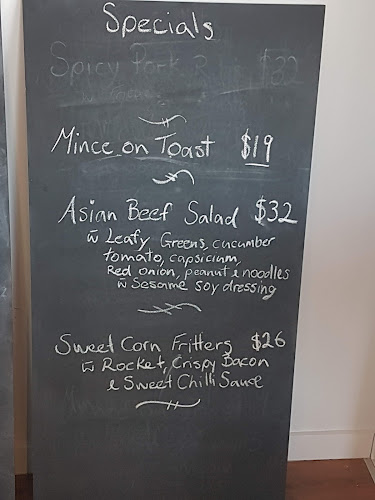 Specials
Spicy Pork $32
Mince on Toast $19
Asian Beef Salad $32
w̄ Leafy Greens, cucumber
tomato, capsicum,
Red onion, peanut & noodles
w̄ Sesame soy dressing
Sweet Corn Fritters $26
w̄ Rocket, Crispy Bacon
& Sweet Chilli Sauce